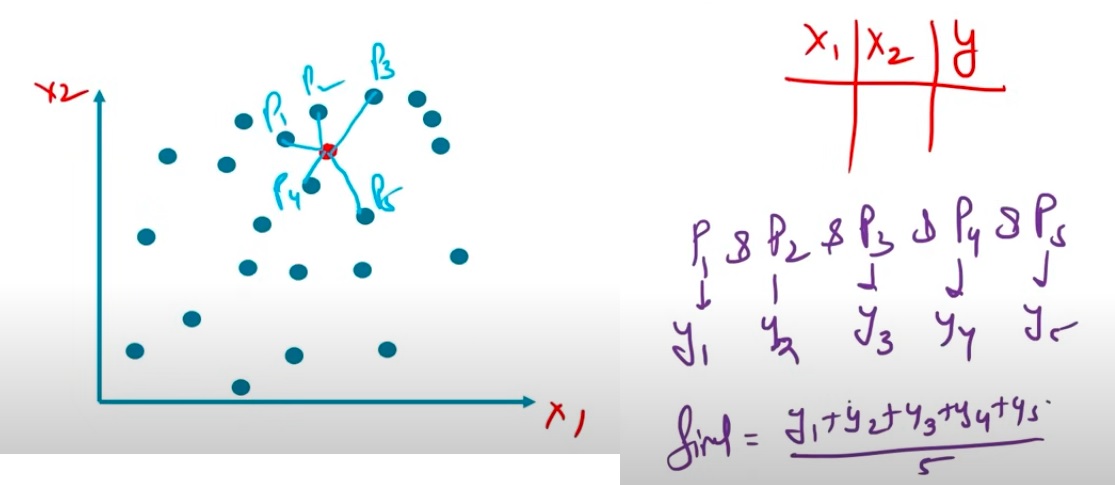 x2
P1
P2
P3
P4
P5
x1
x1 | x2 | y
P1 & P2 & P3 & P4 & P5
y1 y2 y3 y4 y5
final = y1+y2+y3+y4+y5
5